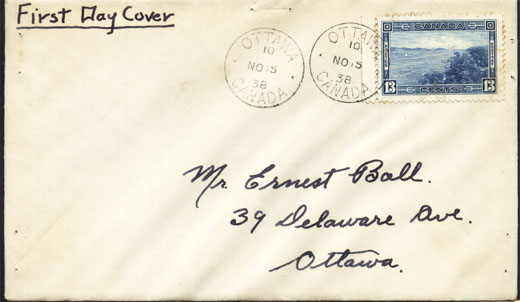 First Day Cover
OTTAWA
10
NO 15
38
CANADA
OTTAWA
10
NO 15
38
CANADA
CANADA
13 CENTS 13
Mr Ernest Ball.
39 Delaware Ave.
Ottawa.